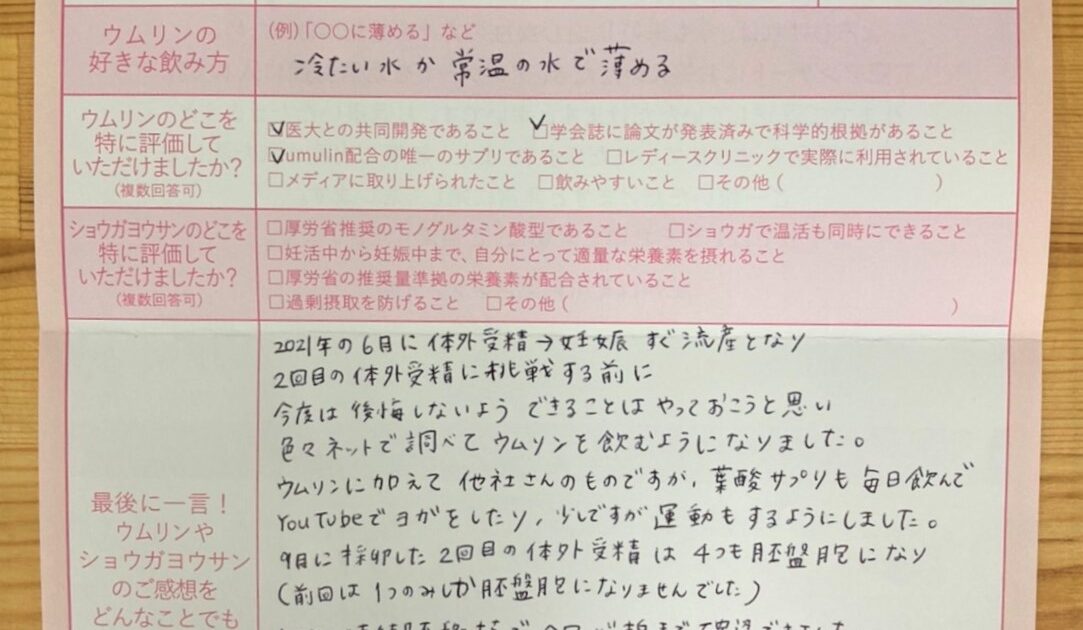 ウムリンの
好きな飲み方
(例)「〇〇に薄める」など
冷たい水か常温の水で薄める
ウムリンのどこを
特に評価して
いただけましたか?
(複数回答可)
☑医大との共同開発であること ☑学会誌に論文が発表済みで科学的根拠があること
☑umulin配合の唯一のサプリであること □レディースクリニックで実際に利用されていること
□メディアに取り上げられたこと □飲みやすいこと □その他( )
ショウガヨウサンのどこを
特に評価して
いただけましたか?
(複数回答可)
□厚労省推奨のモノグルタミン酸型であること □ショウガで温活も同時にできること
□妊活中から妊娠中まで、自分にとって適量な栄養素を摂れること
□厚労省の推奨量準拠の栄養素が配合されていること
□過剰摂取を防げること □その他( )
最後に一言!
ウムリンや
ショウガヨウサン
のご感想を
どんなことでも
2021年の6月に体外受精→妊娠 すぐ流産となり
2回目の体外受精に挑戦する前に
今度は後悔しないよう できることは やっておこうと思い
色々ネットで調べて ウムリンを飲むようになりました。
ウムリンに加えて 他社さんのものですが、葉酸サプリも毎日飲んで
YouTubeでヨガをしたり、少しですが運動もするようにしました。
9月に採卵した2回目の体外受精は 4つも胚盤胞になり
(前回は1つのみしか胚盤胞になりませんでした)